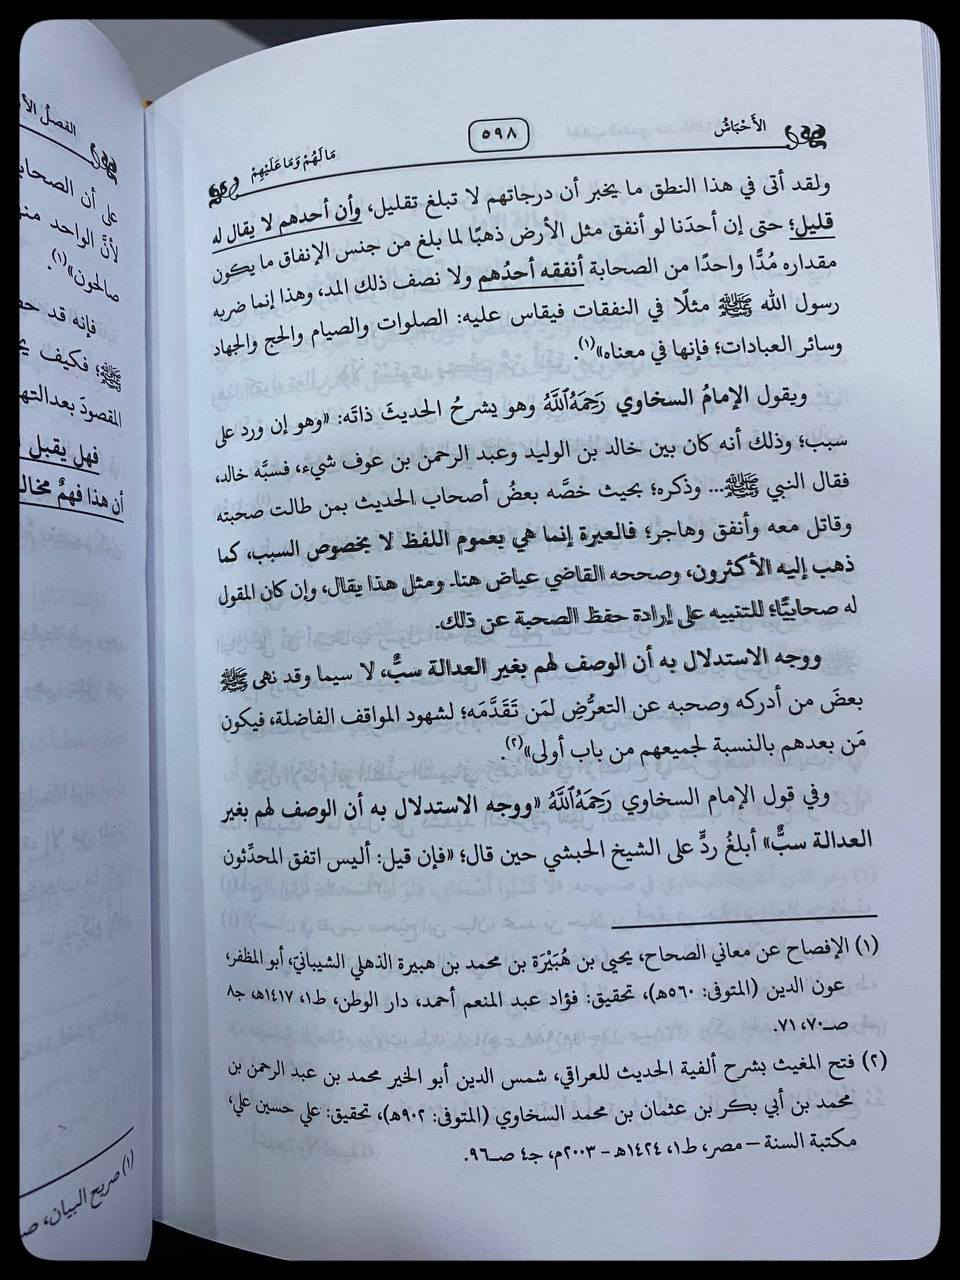 الأَحْبَاشُ
٥٩٨
مَا لَهُمْ وَمَا عَلَيْهِمْ
ولقد أتى في هذا النطق ما يخبر أن درجاتهم لا تبلغ تقليل، وأن أحدهم لا يقال له
قليل؛ حتى إن أحدَنا لو أنفق مثل الأرض ذهبًا لما بلغ من جنس الإنفاق ما يكون
مقداره مُدًّا واحدًا من الصحابة أنفقه أحدُهم ولا نصف ذلك المد، وهذا إنما ضربه
رسول الله ﷺ مثلًا في النفقات فيقاس عليه: الصلوات والصيام والحج والجهاد
وسائر العبادات؛ فإنها في معناه»(١).
ويقول الإمامُ السخاوي رَحِمَهُ ٱللَّهُ وهو يشرحُ الحديثَ ذاتَه: «وهو إن ورد على
سبب؛ وذلك أنه كان بين خالد بن الوليد وعبد الرحمن بن عوف شيء، فسبَّه خالد،
فقال النبي ﷺ... وذكره؛ بحيث خصَّه بعضُ أصحاب الحديث بمن طالت صحبته
وقاتل معه وأنفق وهاجر؛ فالعبرة إنما هي بعموم اللفظ لا بخصوص السبب، كما
ذهب إليه الأكثرون، وصححه القاضي عياض هنا. ومثل هذا يقال، وإن كان المقول
له صحابيًّا؛ للتنبيه على إرادة حفظ الصحبة عن ذلك.
ووجه الاستدلال به أن الوصف لهم بغير العدالة سبٌّ، لا سيما وقد نهى ﷺ
بعضَ من أدركه وصحبه عن التعرُّضِ لمَن تَقَدَّمَه؛ لشهود المواقف الفاضلة، فيكون
مَن بعدهم بالنسبة لجميعهم من باب أولى»(٢).
وفي قول الإمام السخاوي رَحِمَهُ ٱللَّهُ «ووجه الاستدلال به أن الوصف لهم بغير
العدالة سبٌّ» أبلغُ ردٍّ على الشيخ الحبشي حين قال؛ «فإن قيل: أليس اتفق المحدِّثون
(١) الإفصاح عن معاني الصحاح، يحيى بن هُبَيْرَة بن محمد بن هبيرة الذهلي الشيبانيّ، أبو المظفر،
عون الدين (المتوفى: ٥٦٠هـ)، تحقيق: فؤاد عبد المنعم أحمد، دار الوطن، ط١، ١٤١٧هـ، ج٨
صـ٧٠، ٧١.
(٢) فتح المغيث بشرح ألفية الحديث للعراقي، شمس الدين أبو الخير محمد بن عبد الرحمن بن
محمد بن أبي بكر بن عثمان بن محمد السخاوي (المتوفى: ٩٠٢هـ)، تحقيق: علي حسين علي،
مكتبة السنة – مصر، ط١، ١٤٢٤هـ - ٢٠٠٣م، ج٤ صـ٩٦.
الفصلُ
على أن
لأنَّ الواحد
صالحون»(١).
فإنه قد
ﷺ؛ فكيف
المقصودَ
فهل يقبل
أن هذا فهمٌ
(١) صريح البيان،